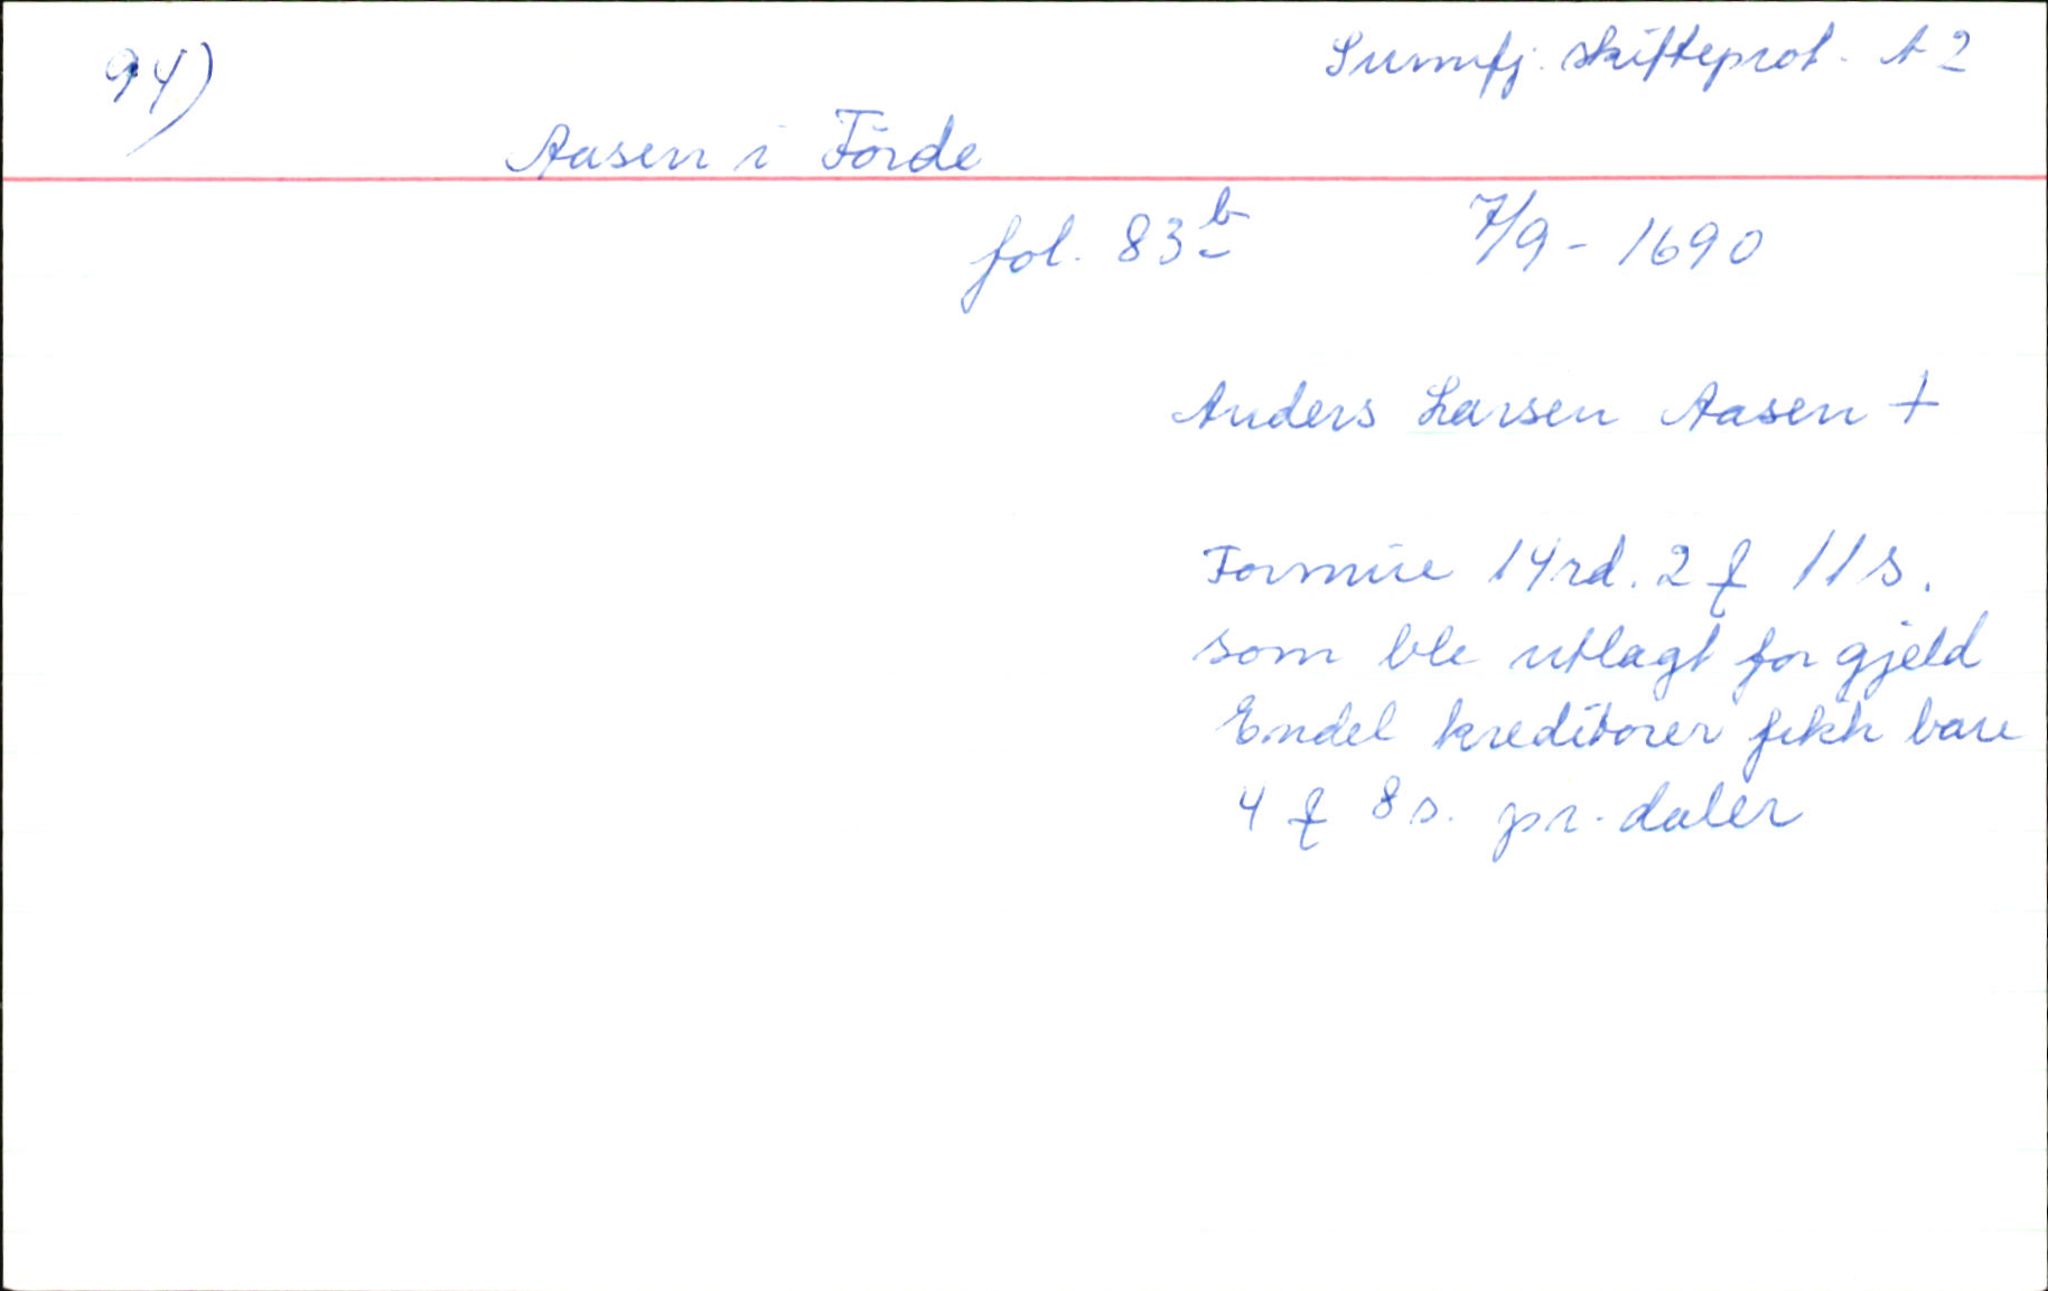 94)
Sunnfj. skifteprot. A 2
Aasen i Förde
fol. 83b 7/9 - 1690
Anders Larsen Aasen +
Formue 14 rd. 2 ℔ 11 s.
som ble utlagt for gjeld
Endel kreditorer fikk bare
4 ℔ 8 s. pr. daler